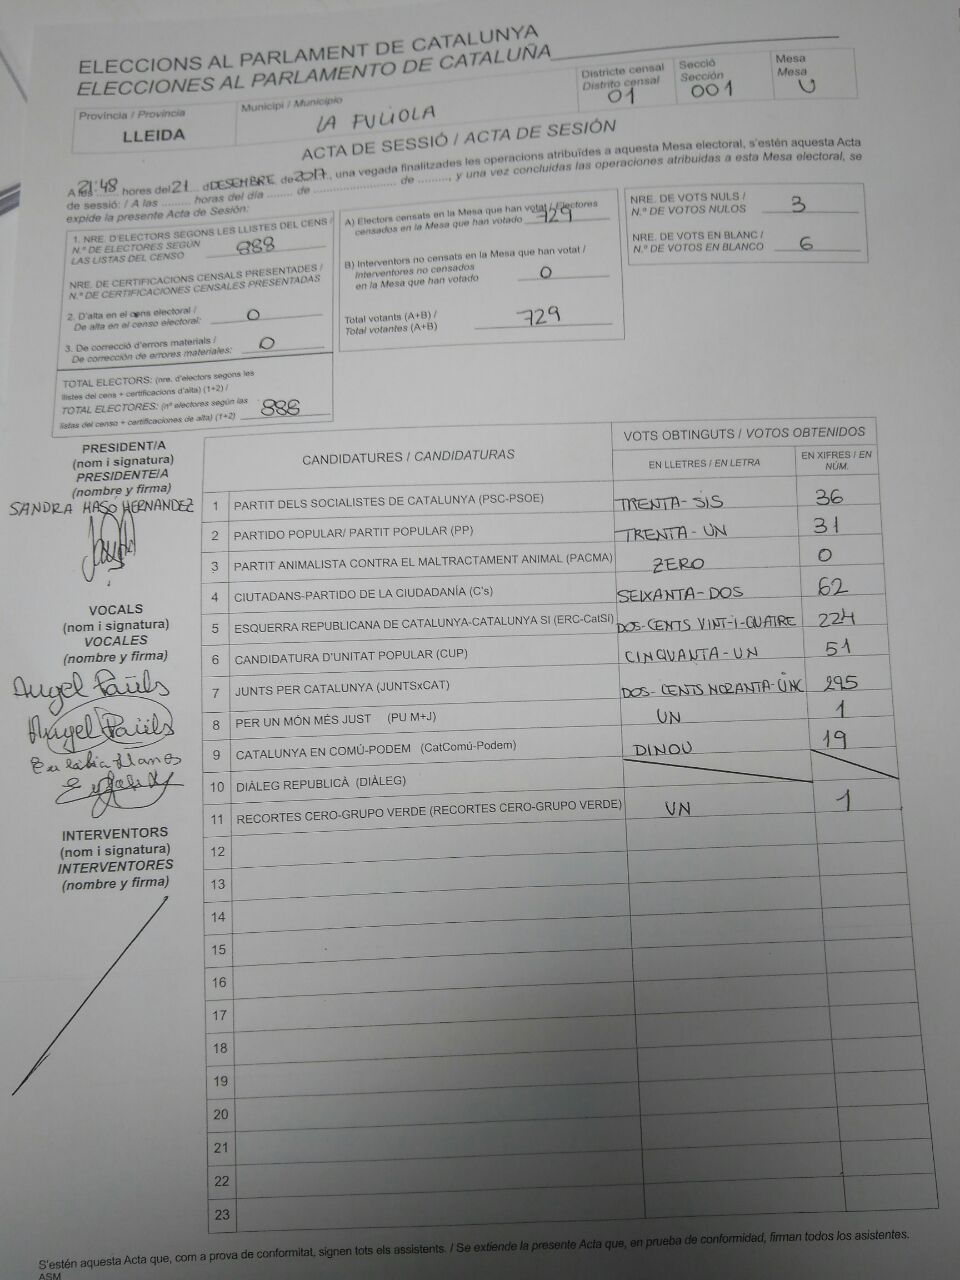 ELECCIONS AL PARLAMENT DE CATALUNYA
ELECCIONES AL PARLAMENTO DE CATALUÑA
Província / Provincia
LLEIDA
Municipi / Municipio
LA FULIOLA
Districte censal
Distrito censal
01
Secció
Sección
001
Mesa
Mesa
U
ACTA DE SESSIÓ / ACTA DE SESIÓN
A les 21:48 hores del 21 d DESEMBRE de 2017, una vegada finalitzades les operacions atribuïdes a aquesta Mesa electoral, s'estén aquesta Acta
de sessió: / A las ......... horas del día ................................ de ........................ de ........., y una vez concluidas las operaciones atribuidas a esta Mesa electoral, se
expide la presente Acta de Sesión:
1. NRE. D'ELECTORS SEGONS LES LLISTES DEL CENS /
N.º DE ELECTORES SEGÚN
LAS LISTAS DEL CENSO
888
NRE. DE CERTIFICACIONS CENSALS PRESENTADES /
N.º DE CERTIFICACIONES CENSALES PRESENTADAS
2. D'alta en el cens electoral /
De alta en el censo electoral:
0
3. De correcció d'errors materials /
De corrección de errores materiales:
0
TOTAL ELECTORS: (nre. d'electors segons les
llistes del cens + certificacions d'alta) (1+2) /
TOTAL ELECTORES: (nº electores según las
listas del censo + certificaciones de alta) (1+2)
888
A) Electors censats en la Mesa que han votat / Electores
censados en la Mesa que han votado
729
B) Interventors no censats en la Mesa que han votat /
Interventores no censados
en la Mesa que han votado
0
Total votants (A+B) /
Total votantes (A+B)
729
NRE. DE VOTS NULS /
N.º DE VOTOS NULOS
3
NRE. DE VOTS EN BLANC /
N.º DE VOTOS EN BLANCO
6
PRESIDENT/A
(nom i signatura)
PRESIDENTE/A
(nombre y firma)
SANDRA MASÓ HERNANDEZ
VOCALS
(nom i signatura)
VOCALES
(nombre y firma)
Angel Paüls
Angel Paüls
Eulàlia Llanos
INTERVENTORS
(nom i signatura)
INTERVENTORES
(nombre y firma)
CANDIDATURES / CANDIDATURAS
VOTS OBTINGUTS / VOTOS OBTENIDOS
EN LLETRES / EN LETRA
EN XIFRES / EN
NÚM.
1 PARTIT DELS SOCIALISTES DE CATALUNYA (PSC-PSOE) TRENTA-SIS 36
2 PARTIDO POPULAR/ PARTIT POPULAR (PP) TRENTA-UN 31
3 PARTIT ANIMALISTA CONTRA EL MALTRACTAMENT ANIMAL (PACMA) ZERO 0
4 CIUTADANS-PARTIDO DE LA CIUDADANÍA (C's) SEIXANTA-DOS 62
5 ESQUERRA REPUBLICANA DE CATALUNYA-CATALUNYA SI (ERC-CatSI) DOS-CENTS VINT-I-QUATRE 224
6 CANDIDATURA D'UNITAT POPULAR (CUP) CINQUANTA-UN 51
7 JUNTS PER CATALUNYA (JUNTSxCAT) DOS-CENTS NORANTA-CINC 295
8 PER UN MÓN MÉS JUST (PU M+J) UN 1
9 CATALUNYA EN COMÚ-PODEM (CatComú-Podem) DINOU 19
10 DIÀLEG REPUBLICÀ (DIÀLEG)
11 RECORTES CERO-GRUPO VERDE (RECORTES CERO-GRUPO VERDE) UN 1
12
13
14
15
16
17
18
19
20
21
22
23
S'estén aquesta Acta que, com a prova de conformitat, signen tots els assistents. / Se extiende la presente Acta que, en prueba de conformidad, firman todos los asistentes.
ASM